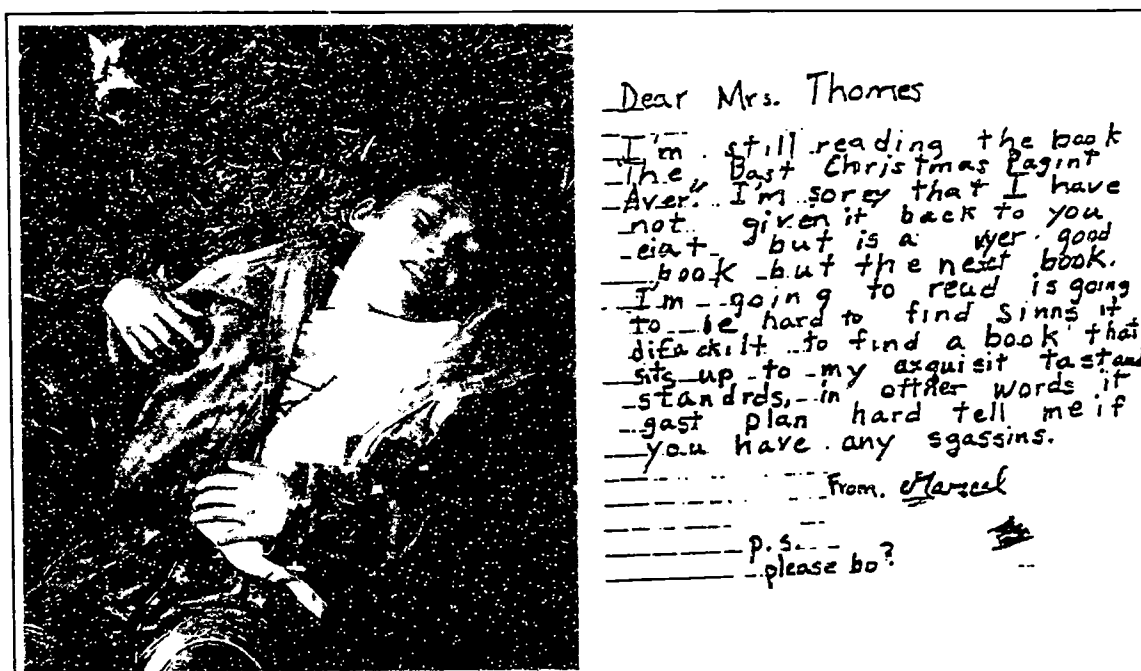 Dear Mrs. Thomes
I'm still reading the book
"The Bast Christmas Pagint
Aver." I'm sorey that I have
not given it back to you
eiat but is a vyer good
book but the nexst book.
I'm going to read is going
to be hard to find sinns it
difackilt to find a book that
sits up to my axquisit tastand
standrds, in offher words it
gast plan hard tell me if
you have any sgassins.
From. Marcel
p.s.
please bo?